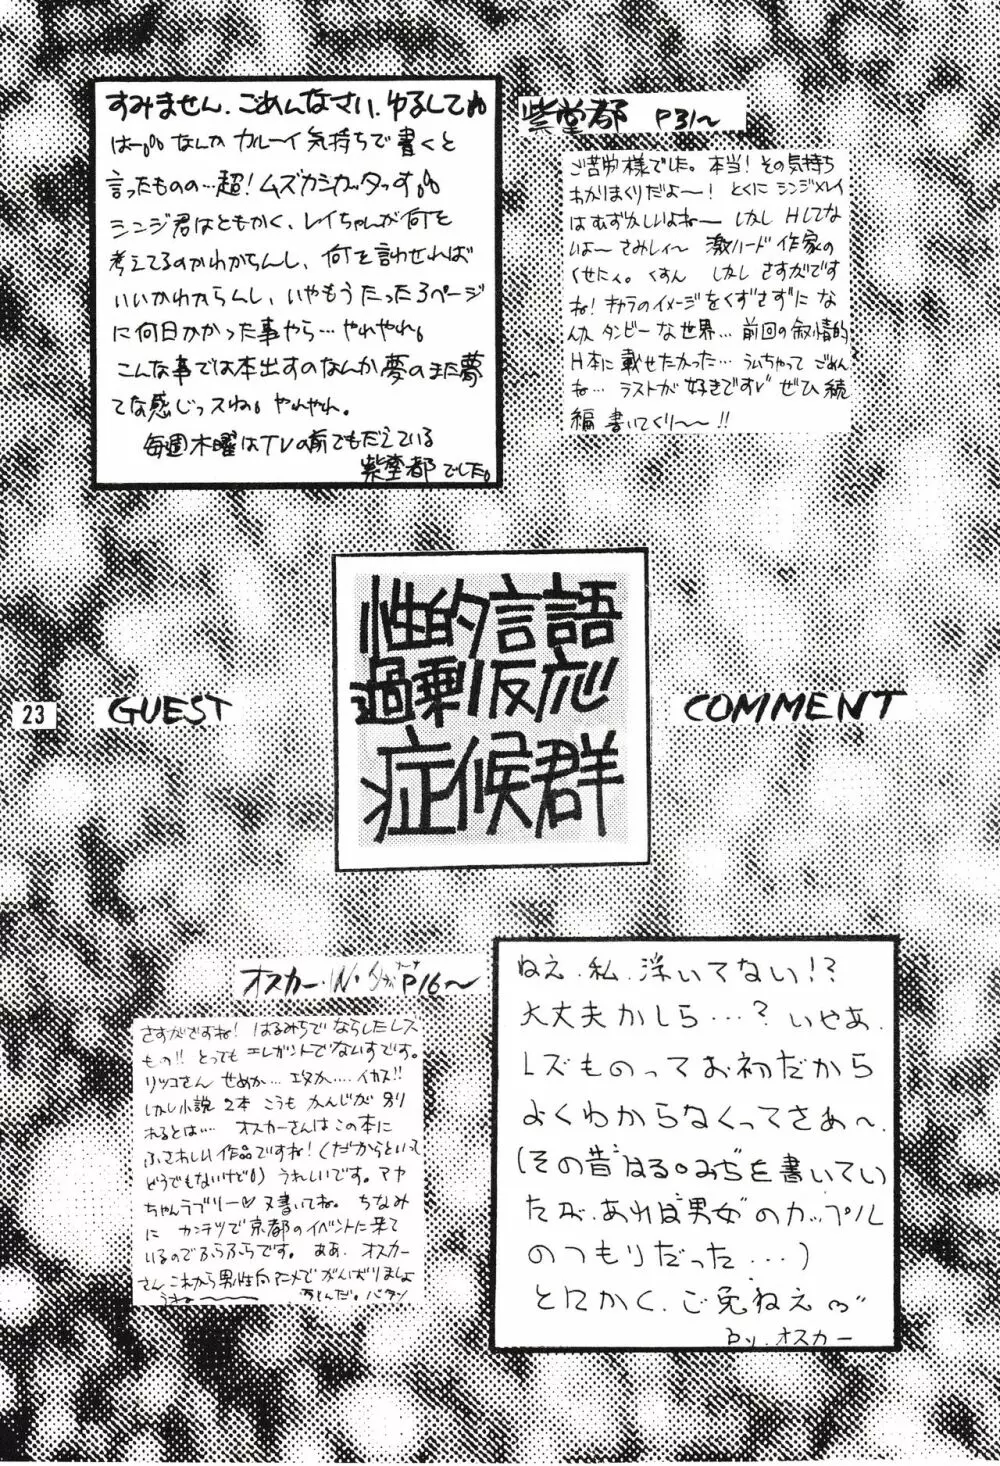 すみません.ごめんなさい.ゆるしてね
はー。なんか カルーイ 気持ちで 書くと
言ったものの…超!ムズカシカッタっす。
シンジ君はともかく、レイちゃんが何を
考えてるのかわからんし、何を言わせれば
いいかわからんし、いやもうたった3ページ
に何日かかった事やら…やれやれ。
こんな事では本出すのなんか夢のまた夢
てな感じっスね。やれやれ。
毎週木曜はTVの前でもだえている
紫堂都でした。
紫堂都 P31〜
ご苦労様でした。本当!その気持ち
わかりまくりだよ〜!とくにシンジ×レイ
はむずかしいよね〜 しかし Hしてな
いよ〜 さみしィ〜 激ハード作家の
くせに。くすん しかし さすがです
ね!キャラのイメージをくずさずに な
んか タンビーな世界…前回の叙情的
H本に載せたかった…うぃちゃって ごめん
ね…ラストが好きです ぜひ続
編書いてくり〜〜!!
性的言語
過剰反応
症候群
23
GUEST
COMMENT
オスカー・W・ P16〜
さすがですね!はるみちでならしたレズ
もの!!とってもエレガントでないすです。
リツコさん せめか…攻か…イカス!!
しかし小説2本こうもかんじが別
れるとは…オスカーさんはこの本に
ふさわしい作品ですね!(だからといって
どうでもないけど)うれしいです。マヤ
ちゃんラブリー♡又書いてね。ちなみ
に カンテツで京都のイベントに来て
いるのでふらふらです。ああ、オスカー
さんこれから男性向アニメでがんばりましょ
うね〜 バタン
ねえ.私.浮いてない!?
大丈夫かしら…?いやあ.
レズものってお初だから
よくわからなくってさあ〜.
(その昔はる。みちを書いてい
たが.あれは男女のカップル
のつもりだった…)
とにかく.ご免ねえ
By.オスカー